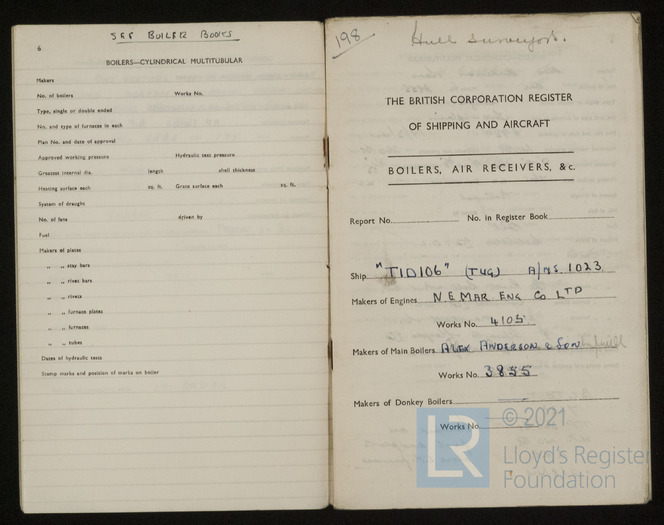 SEE BOILER BOOKS
6
BOILERS—CYLINDRICAL MULTITUBULAR
Makers
No. of boilers Works No.
Type, single or double ended
No. and type of furnaces in each
Plan No. and date of approval
Approved working pressure Hydraulic test pressure
Greatest internal dia. length shell thickness
Heating surface each sq. ft. Grate surface each sq. ft.
System of draught
No. of fans driven by
Fuel
Makers of plates
„ „ stay bars
„ „ rivet bars
„ „ rivets
„ „ furnace plates
„ „ furnaces
„ „ tubes
Dates of hydraulic tests
Stamp marks and position of marks on boiler
198 Hull Surveyors.
THE BRITISH CORPORATION REGISTER
OF SHIPPING AND AIRCRAFT
BOILERS, AIR RECEIVERS, &c.
Report No. No. in Register Book
Ship "TID106" (TUG) A/MS. 1023
Makers of Engines N.E MAR. ENG CO LTD
Works No. 4105
Makers of Main Boilers ALEX ANDERSON & SON
Works No. 3855
Makers of Donkey Boilers —
Works No.
LR © 2021
Lloyd's Register
Foundation